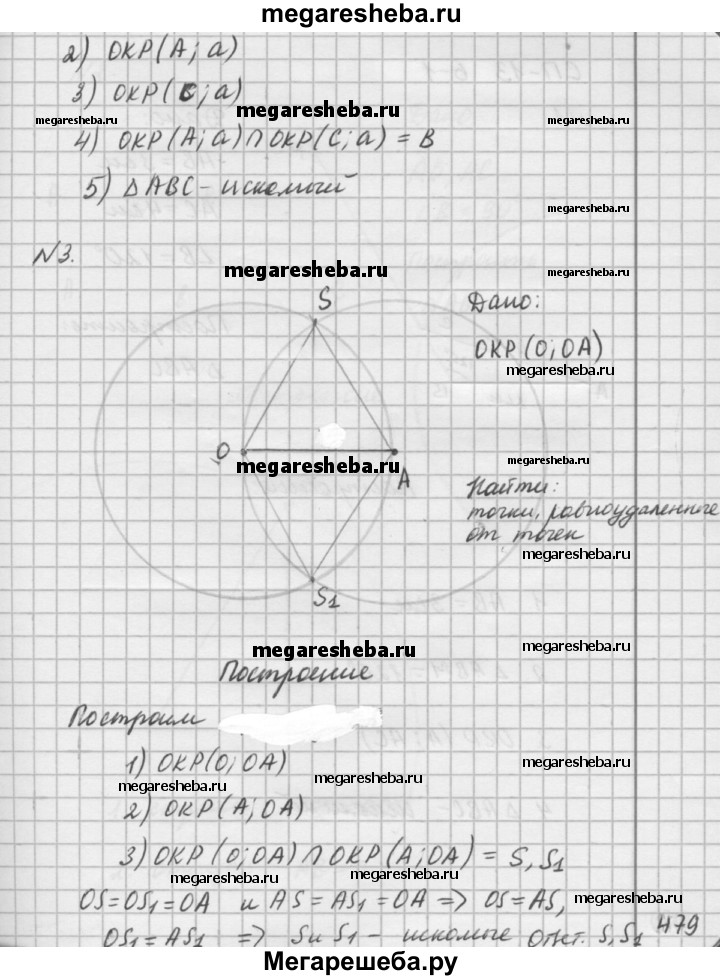 megaresheba.ru
2) ОКР(А; а)
3) ОКР(С; а)
megaresheba.ru megaresheba.ru megaresheba.ru
4) ОКР(А; а)∩ОКР(С; а) = В
5) ΔАВС - искомый
megaresheba.ru
N3.
megaresheba.ru megaresheba.ru
S
Дано:
ОКР(О; ОА)
megaresheba.ru
О
megaresheba.ru megaresheba.ru
А
Найти:
точки, равноудаленные
от точек
megaresheba.ru
S1
megaresheba.ru megaresheba.ru
Построение
Построим
1) ОКР(О; ОА)
megaresheba.ru megaresheba.ru megaresheba.ru
2) ОКР(А; ОА)
3) ОКР(О; ОА)∩ОКР(А; ОА) = S, S1
megaresheba.ru megaresheba.ru
OS=OS1=OA и AS=AS1=OA => OS=AS,
megaresheba.ru
OS1=AS1 => S и S1 - искомые ответ. S, S1
479
Мегарешеба.ру